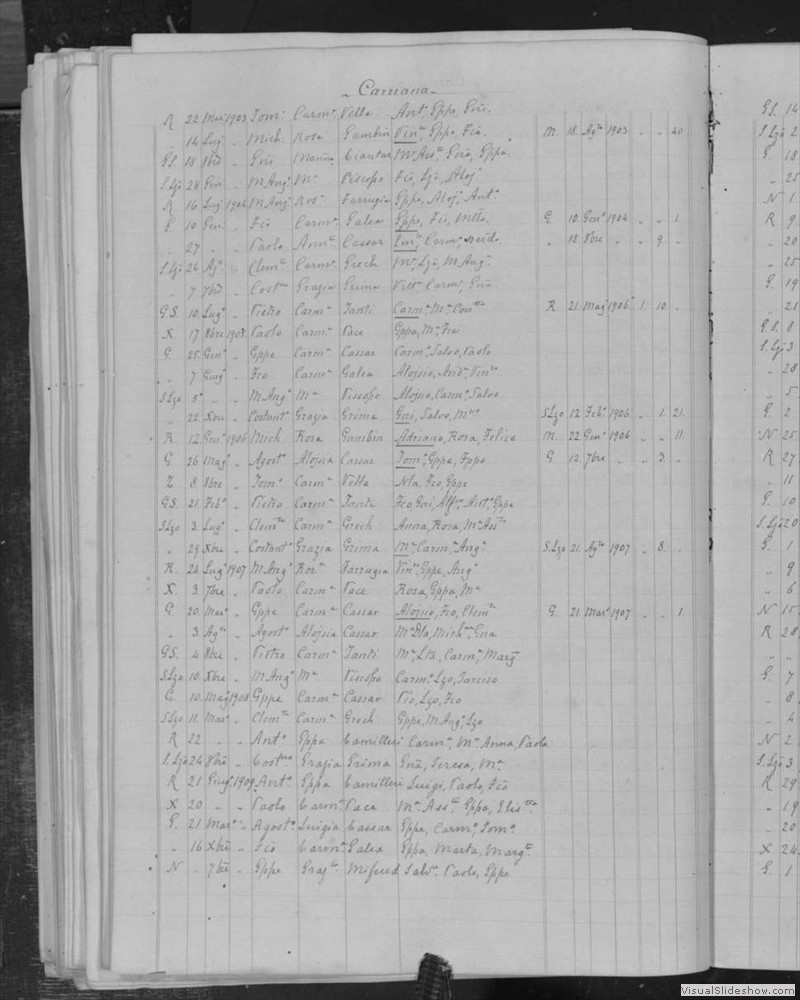 Caruana
R 22 Mar 1903 Tom. Carm. Vella Ant. Gppe, Giu.
" 14 Lug. " Mich. Rosa Gambin Vin. Gppe, Fca. M. 18. Ag. 1903 " " 20
GS. 18 8bre " Giu Mauna Ciantar Mª Ass. Giu, Gppa.
S.Lzo 28 Giu. " M Ang. Mª Piscopo Fco, Lzo, Aloj.
R 16 Lug. 1904 M Ang. Ros. Farrugia Gppe, Aloj. Ant.
G 10 Gen. " Fco Carm. Galea Gppe, Fco, G. 10. Gen. 1904 " " 1.
" 27 . " Paolo Ann. Cassar Em. Carm. " 18. 8bre " " 9 "
S.Lzo 26 Ag. " Clem. Carm. Grech Mª, Lzo, M Ang.
" 7 7bre " Cost. Grazia Grima Carm. Giu
G.S. 10. Lug. " Pietro Carm. Tanti Carm. Mª Con. R 21. Mag. 1906. 1. 10 "
X 17 8bre 1905 Paolo Carm. Pace Gppa, Mª, Fca
G. 25. Gen. " Gppe Carm. Cassar Carm. Salvo, Paolo
" 7 Giug. " Fco Carm. Galea Alojsio, And. Vin.
SLzo 5 " " M Ang. Mª Piscopo Alojsio, Carm. Salvo
" 22. Xbre " Costant. Grazia Grima Gni, Salvo, M SLzo 12 Feb. 1906 " 1. 21.
R 12. Gen. 1906 Mich. Rosa Gambin Adriano, Rosa, Felice M. 22 Gen. 1906 " " 11.
G. 26 Mag. " Agost. Alojsia Cassar Tom. Gppe, Fppo G. 12. 7bre " " 3. "
Z 8 8bre " Tom. Carm. Vella Nla, Fco, Gppe
GS. 21. Feb. " Pietro Carm. Tanti Fco, Gni, Alf. Ant. Gppe
SLzo 3. Lug. " Clem. Carm. Grech Anna, Rosa, Mª Ass.
" 29. Xbre " Costant. Grazia Grima Mª Carm. Ang. S.Lzo 21. Ag. 1907 " 8. "
R. 24 Lug. 1907 M Ang. Ros. Farrugia Vin. Gppe, Ang.
X. 3. 7bre " Paolo Carm. Pace Rosa, Gppa, Mª
G. 20. Mar. " Gppe Carm. Cassar Alojsio, Fco, Clem. G. 21. Mar. 1907 " " 1.
" 3 Ag. " Agost. Alojsia Cassar Mª Dla, Mich. Gna
GS. 4 8bre " Pietro Carm. Tanti Mª Lza, Carm. Marg.
SLzo 10. Xbre " M Ang. Mª Piscopo Carm. Lzo, Tarciso
G. 10. Mag. 1908 Gppe Carm. Cassar Pio, Lzo, Fco
SLzo 11. Mar. " Clem. Carm. Grech Gppe, M Ang. Lzo
R 22 " " Ant. Gppa Camilleri Carm. Mª Anna, Paola
S.Lzo 24 8bre " Cost. Grazia Grima Gna, Teresa, Mª
R 21 Giug. 1909 Ant. Gppa Camilleri Luigi, Paolo, Fco
X 20 " " Paolo Carm. Pace Mª Ass. Gppa, Elis.
G. 21 Mar. " Agost. Luigia Cassar Gppe, Carm. Tom.
" 16 Xbre " Fco Carm. Galea Gppa, Marta, Marg.
N " 7bre " Gppe Graz. Mifsud Salv. Paolo, Gppe
GS. 14
S.Lzo 2
G. 18
" 25
N 1
R 9
" 20
" 25
G. 19
" 21
G.S. 8
S.Lzo 3
" 28
" 5
G. 2
N 25
R 27
" 11
G 10
S.Lzo 20
G. 1
" 9
" 6
N 15
R 28
" "
G. 7
" 8
" 4
N 2
S.Lzo 3
R 29
" 19
" 20
X 24
G. 1
VisualSlideshow.com